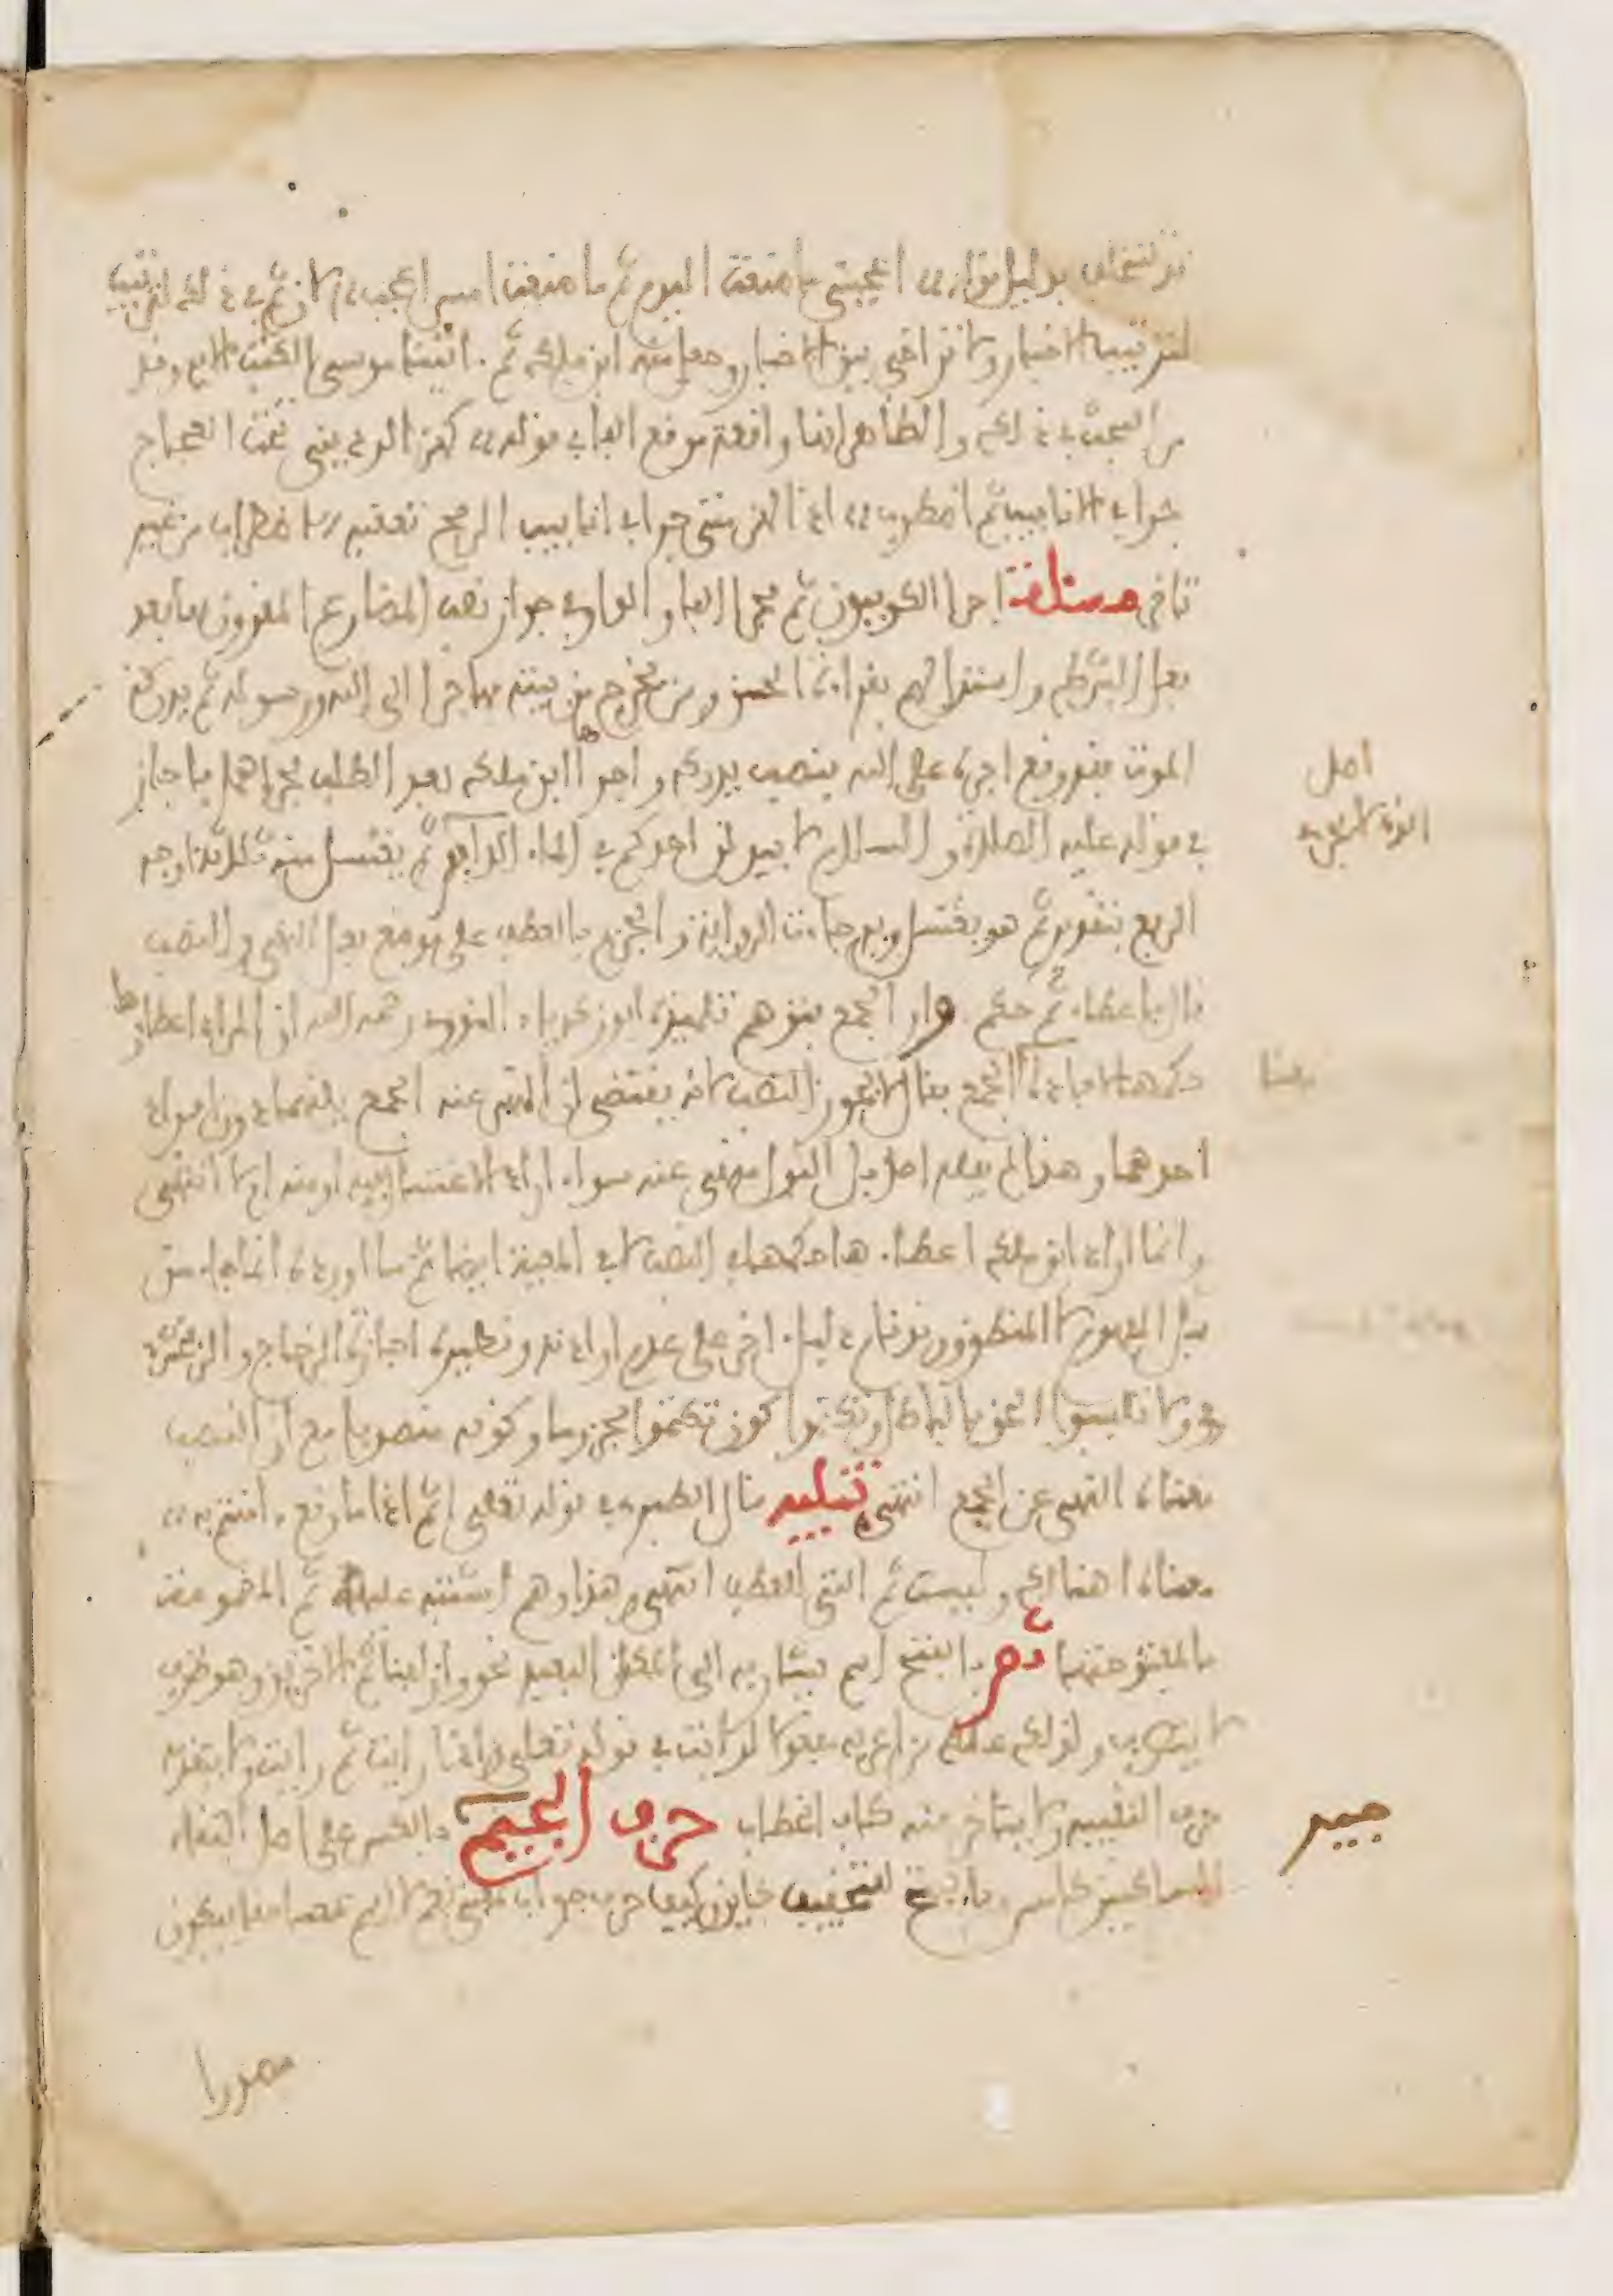 قد تتخلف بدليل قولك اعجبني ما صنعت اليوم ثم ما صنعت امس اعجب لان ثم في ذلك لترتيب
لترتيب الاخبار ولا تراخي بين الاخبارين وجعل منه ابن ملك ثم اتينا موسى الكتب الاية وقد
مر البحث في ذلك والظاهر انها واقعة موقع الفاء في قوله كهز الرديني تحت العجاج
جرى في الانابيب ثم اضطرب اذ الهز متى جرى في انابيب الرمح تعقبه الاضطراب من غير
تراخ مسئلة اجرى الكوفيون ثم مجرى الفاء والواو في جواز نصب المضارع المقرون بها بعد
فعل الشرط واستدل لهم بقراءة الحسن ومن يخرج من بيته مهاجرا الى الله ورسوله ثم يدركه
الموت فقد وقع اجره على الله بنصب يدركه واجراها ابن ملك بعد الطلب مجراهما فاجاز
في قوله عليه الصلاة والسلام لا يبولن احدكم في الماء الدائم ثم يغتسل منه ثلاثة اوجه
الرفع بتقدير ثم هو يغتسل وبه جاءت الرواية والجزم بالعطف على موضع فعل النهي والنصب
قال باعطاء ثم حكم واو الجمع فتوهم تلميذه ابو زكرياء النووي رحمه الله ان المراد اعطاؤها
حكمها في افادة الجمع فقال لا يجوز النصب لانه يقتضي ان المنهي عنه الجمع بينهما دون افراد
احدهما وهذا لم يقله احد بل البول منهي عنه سواء اراد الاغتسال فيه او منه ام لا انتهى
وانما اراد ابن ملك اعطاءها حكمها في النصب لا في المعية ايضا ثم ما اورده انما جاء من
قبل المفهوم لا المنطوق وقد قام دليل اخر على عدم ارادته ونظيره اجازة الزجاج والزمخشري
في ولا تلبسوا الحق بالباطل وتكتموا كون تكتموا مجزوما وكونه منصوبا مع ان النصب
معناه النهي عن الجمع انتهى تنبيه قال الطبري في قوله تعلى اثم اذا ما وقع ءامنتم به
معناه اهنالك وليست ثم التي للعطف انتهى وهذا وهم اشتبه عليه ثم المضمومة
بالمفتوحتها ثم بالفتح اسم يشار به الى المكان البعيد نحو وازلفنا ثم الاخرين وهو ظرف
لا يتصرف ولذلك غلط من اعربه مفعولا لرايت في قوله تعلى واذا رايت ثم رايت ولا يتقدمه
حرف التنبيه ولا يتاخر عنه كاف الخطاب حرف الجيم جير بالكسر على اصل التقاء
الساكنين كامس وبالفتح للتخفيف كاين وكيف حرف جواب بمعنى نعم لا اسم بمعنى حقا فيكون
مصدرا
اصل
جير